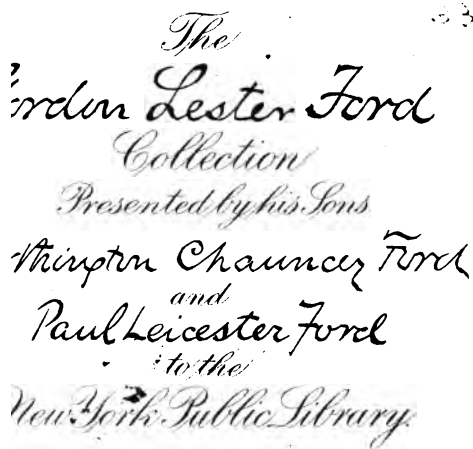 The
ordon Lester Ford
Collection
Presented by his Sons
thington Chauncey Ford
and
Paul Leicester Ford
to the
New York Public Library.